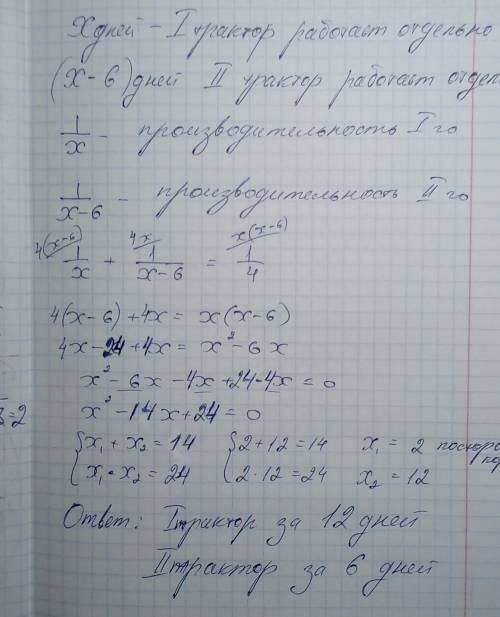 X дней – I трактор работает отдельно
(x-6) дней II трактор работает отдел
1/x – производительность I го
1/(x-6) – производительность II го
4(x-6) 4x x(x-6)
1/x + 1/(x-6) = 1/4
4(x-6)+4x = x(x-6)
4x-24+4x = x²-6x
x²-6x-4x+24-4x=0
=2
x²-14x+24=0
{x₁+x₂=14 {2+12=14 x₁=2 посторо
{x₁·x₂=24 {2·12=24 x₂=12
Ответ: I трактор за 12 дней
II трактор за 6 дней